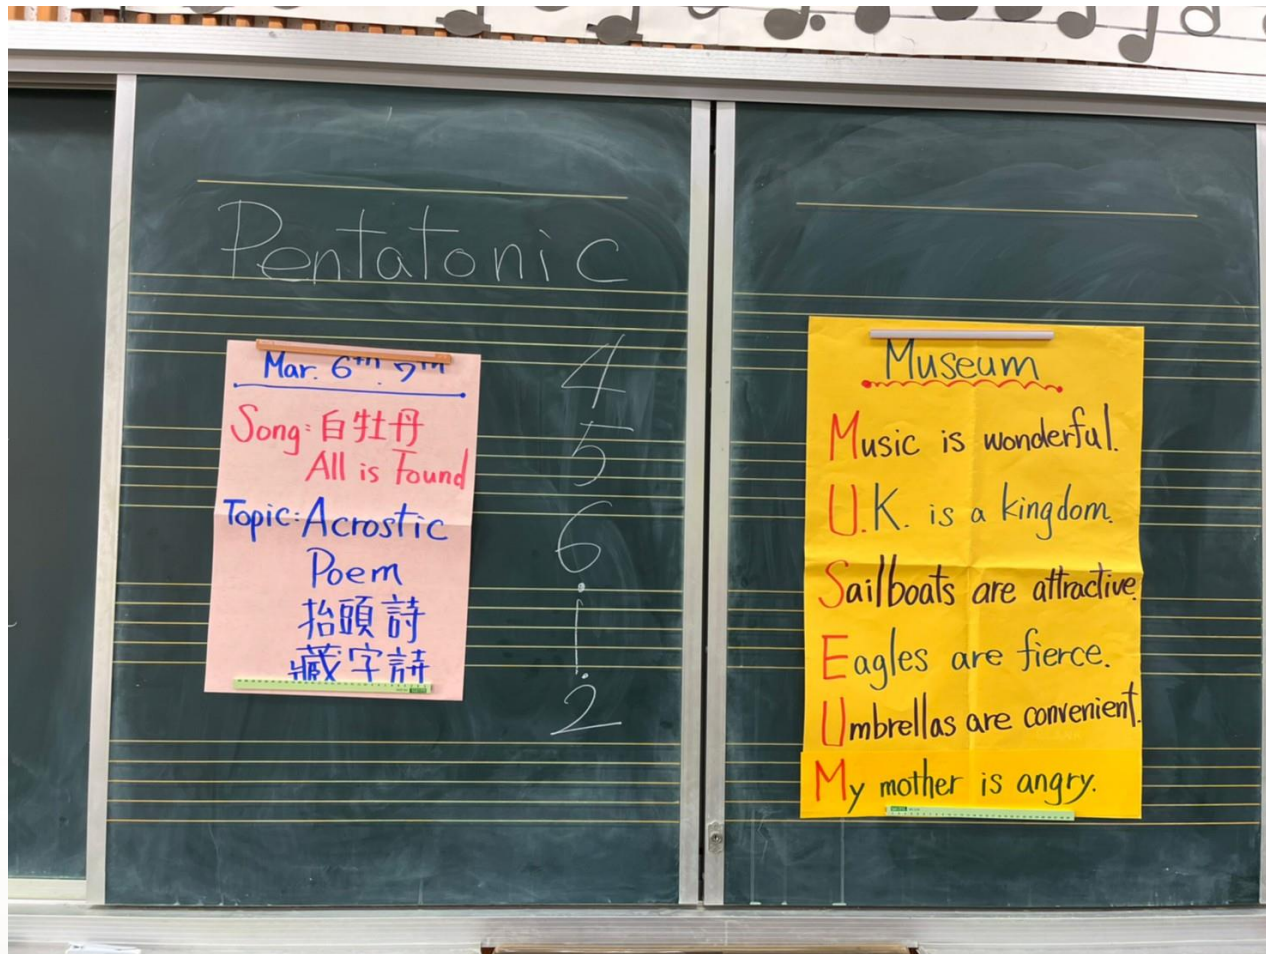 Pentatonic
Mar. 6th. 7th
Song: 白牡丹
All is Found
Topic: Acrostic
Poem
抬頭詩
藏字詩
4
5
6
i
2̇
Museum
Music is wonderful.
U.K. is a kingdom.
Sailboats are attractive.
Eagles are fierce.
Umbrellas are convenient.
My mother is angry.